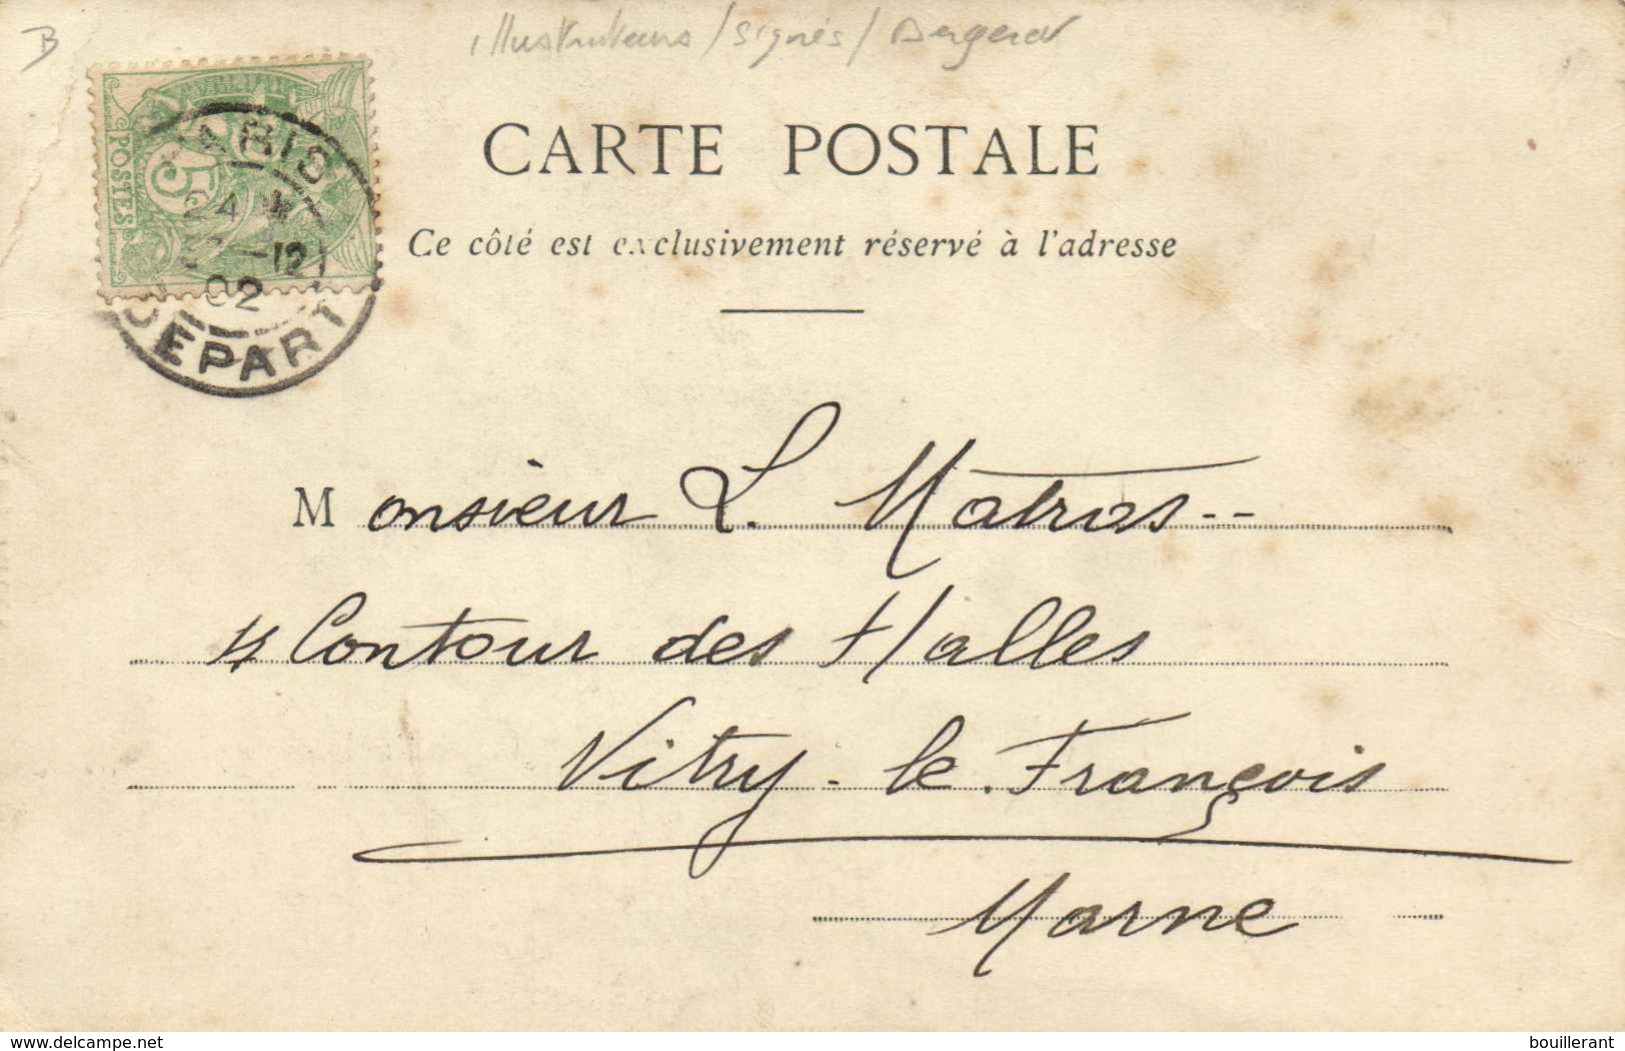 B
illustrateurs / signés / Bergeret
POSTES
5
PARIS
24
-12
02
DEPART
CARTE POSTALE
Ce côté est exclusivement réservé à l'adresse
Monsieur L. Matras--
4 Contour des Halles
Vitry-le.François
Marne
delcampe.net
bouillerant